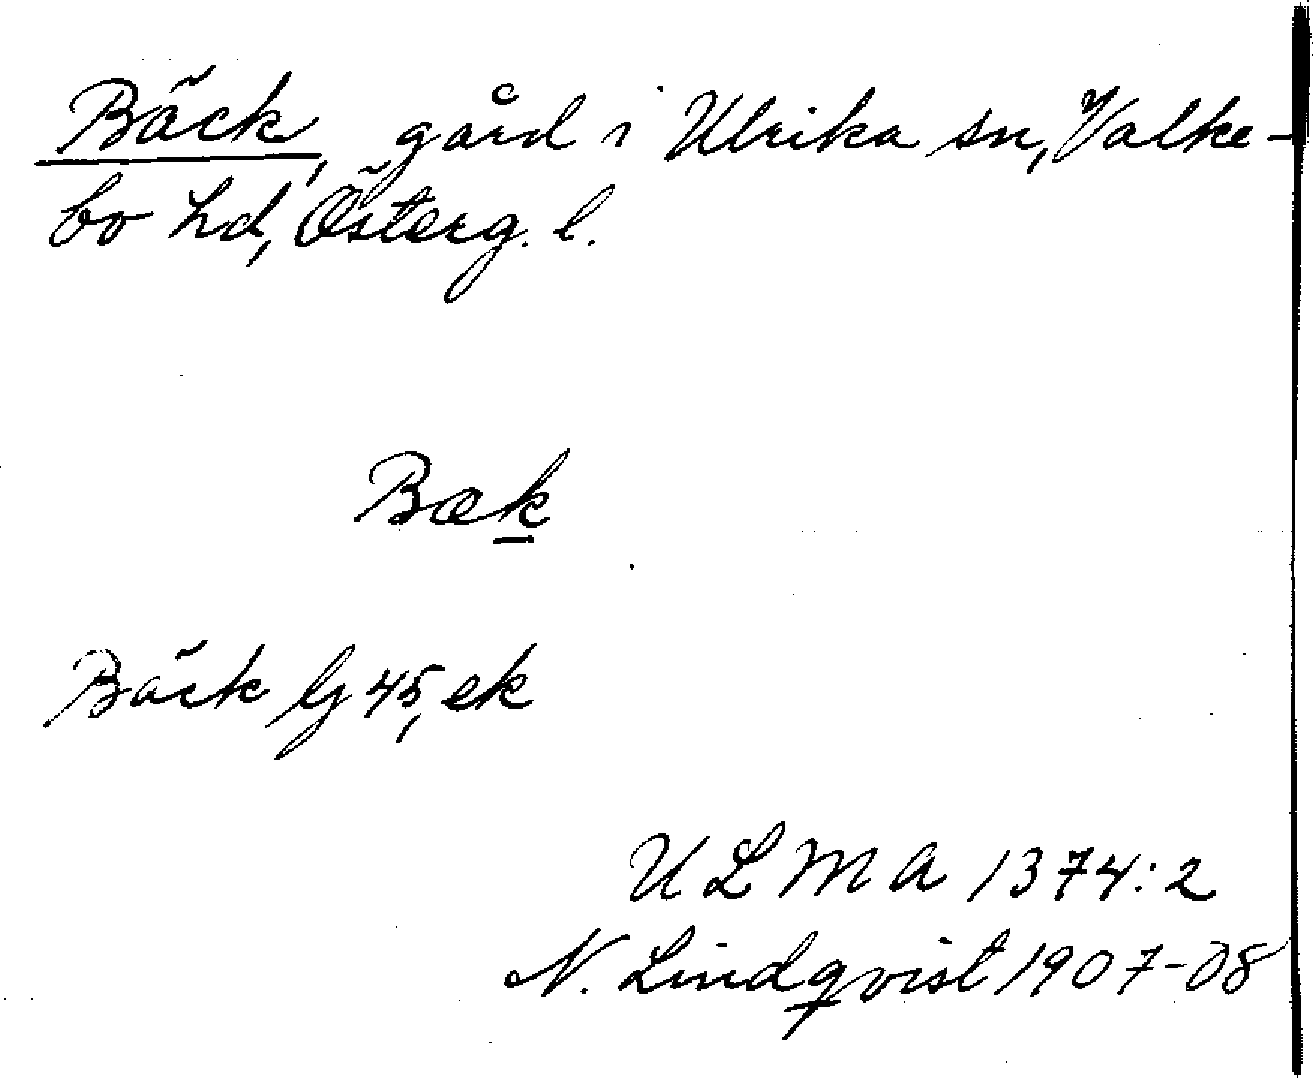 Bäck, gård i Ulrika sn, Valke-
bo hd, Österg. l.
Bæk
Bäck lj 45, ek
ULMA 1374:2
N. Lindqvist 1907-08